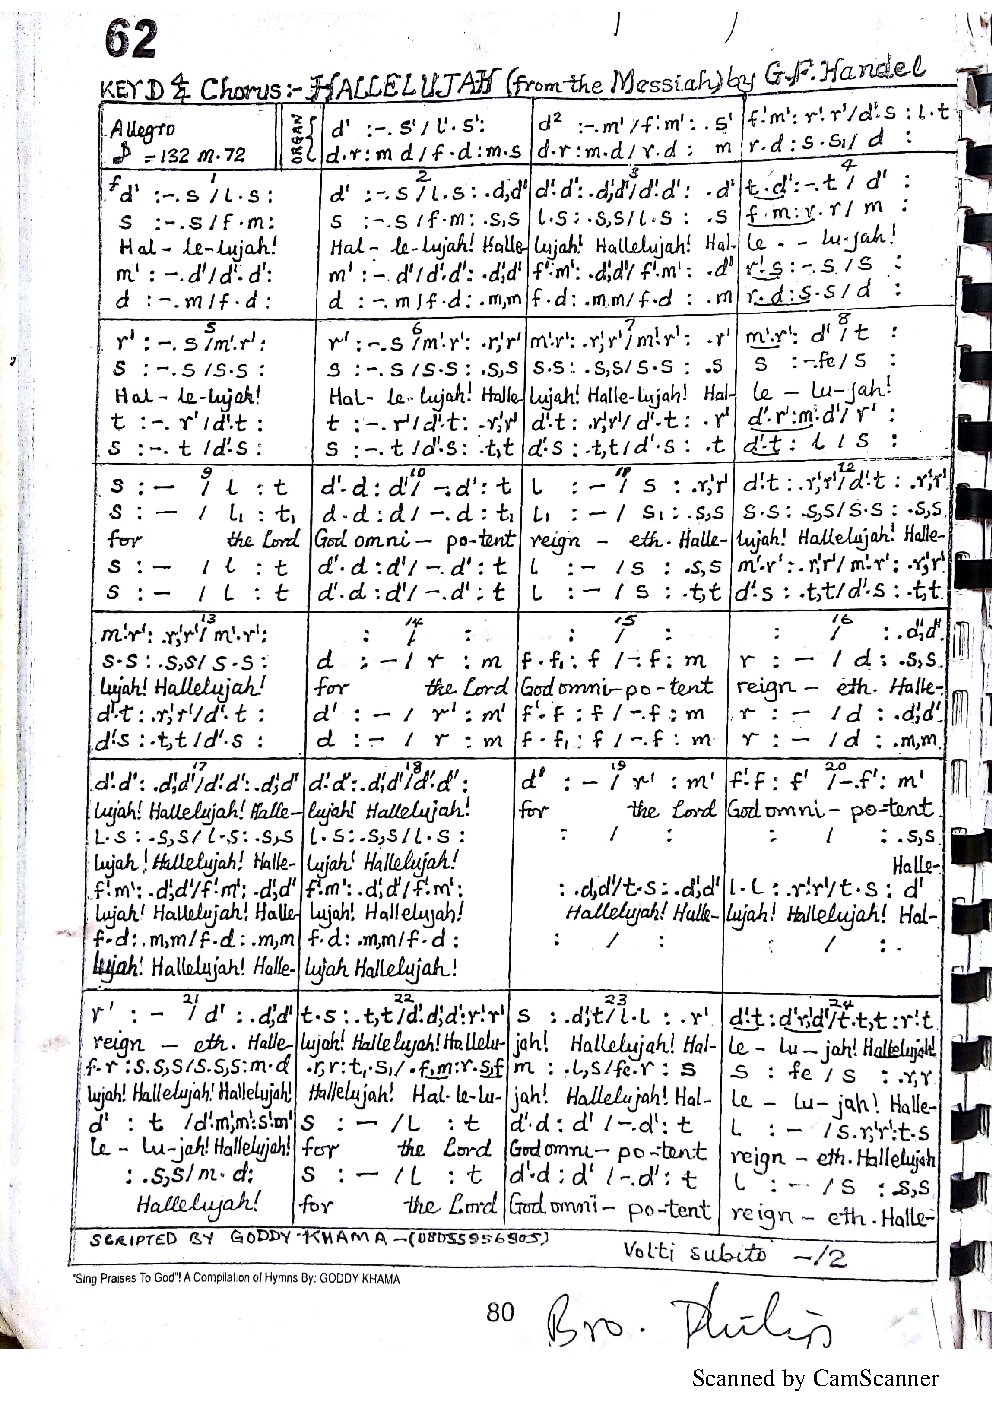 62
KEY D 4/4 Chorus:- HALLELUJAH (from the Messiah) by G.F. Handel
Allegro ORGAN d' :-. s'/ l'. s': d² :-. m'/ f'. m': . s' f'.m': r'. r'/ d'. s : l. t
♪ = 132 M.72 d.r : m. d / f . d : m. s d. r : m. d / r. d : m r. d : s. s₁ / d :
1 2 3 4
f d' :-. s / l. s : d' :-. s / l. s : .d',d' d'.d': .d',d'/ d'.d': .d' t. d':-. t / d' :
s :-. s / f. m: s :-. s / f. m: .s,s l.s : .s,s/ l.s : .s f.m: r. r/ m :
Hal - le-lujah! Hal - le-lujah! Halle lujah! Hallelujah! Hal- le - - lu-jah!
m' :-. d'/ d'. d': m' :-. d'/ d'.d': .d',d' f'.m': .d',d'/ f'.m': .d' r'. s :-. s / s :
d :-. m / f. d : d :-. m / f. d : .m,m f.d : .m.m/ f.d : .m r. d : s. s / d :
5 6 7 8
r' :-. s / m'.r': r' :-. s / m'.r': .r',r' m'.r': .r',r'/ m'.r': .r' m'.r': d' / t :
s :-. s / s.s : s :-. s / s.s : .s,s s.s : .s,s/ s.s : .s s :-.fe/ s :
Hal - le-lujah! Hal- le-lujah! Halle lujah! Halle-lujah! Hal- le - lu-jah!
t :-. r'/ d'.t : t :-. r'/ d'.t : .r',r' d'.t : .r',r'/ d'.t : .r' d'.r': m'.d'/ r' :
s :-. t / d'.s : s :-. t / d'.s : .t,t d'.s : .t,t/ d'.s : .t d'.t : l / s :
9 10 11 12
s : - / l : t d'.d : d'/ -.d': t l : - / s : .r',r' d'.t : .r',r'/ d'.t : .r',r'
s : - / l₁ : t₁ d.d : d / -.d : t₁ l₁ : - / s₁ : .s,s s.s : .s,s/ s.s : .s,s
for the Lord God omni - po-tent reign - eth. Halle- lujah! Hallelujah! Halle-
s : - / l : t d'.d : d'/ -.d': t l : - / s : .s,s m'.r': .r',r'/ m'.r': .r',r'
s : - / l : t d'.d : d'/ -.d': t l : - / s : .t,t d'.s : .t,t/ d'.s : .t,t
13 14 15 16
m'.r': .r',r'/ m'.r': : / : : / : : / : .d',d'
s.s : .s,s/ s.s : d : - / r : m f.f₁: f / -.f : m r : - / d : .s,s
lujah! Hallelujah! for the Lord God omni-po-tent reign - eth. Halle-
d'.t : .r',r'/ d'.t : d' : - / r' : m' f'.f : f / -.f : m r : - / d : .d',d'
d'.s : .t,t/ d'.s : d : - / r : m f.f₁: f / -.f : m r : - / d : .m,m
17 18 19 20
d'.d': .d',d'/ d'.d': .d',d' d'.d': .d',d'/ d'.d': d' : - / r' : m' f'.f : f' / -.f': m'
lujah! Hallelujah! Halle- lujah! Hallelujah! for the Lord God omni - po-tent
l.s : .s,s/ l.s : .s,s l.s : .s,s/ l.s : : / : : / : .s,s
lujah! Hallelujah! Halle- lujah! Hallelujah! Halle-
f'.m': .d',d'/ f'.m': .d',d' f'.m': .d',d'/ f'.m': : .d,d'/ t.s : .d',d' l.l : .r'r'/ t.s : d'
lujah! Hallelujah! Halle- lujah! Hallelujah! Hallelujah! Halle- lujah! Hallelujah! Hal-
f.d : .m,m/ f.d : .m,m f.d : .m,m/ f.d : : / : : / :
lujah! Hallelujah! Halle- lujah Hallelujah!
21 22 23 24
r' : - / d' : .d',d' t.s : .t,t/ d'.d',d': r'.r' s : .d',t/ l.l : .r' d'.t : d'.r',d'/ t.t,t : r'.t
reign - eth. Halle- lujah! Hallelujah! Hallelu- jah! Hallelujah! Hal- le - lu - jah! Hallelujah!
f.r : s.s,s/ s.s,s : m.d .r,r : t₁.s₁/ .f,m : r.s,f m : .l,s/ fe.r : s s : fe / s : .r,r
lujah! Hallelujah! Hallelujah! Hallelujah! Hal-le-lu- jah! Hallelujah! Hal- le - lu-jah! Halle-
d' : t / d'.m',m': s'.m' s : - / l : t d'.d : d' / -.d': t l : - / s.r',r': t.s
le - lu-jah! Hallelujah! for the Lord God omni - po-tent reign - eth. Hallelujah
: .s,s/ m.d : s : - / l : t d'.d : d' / -.d': t l : - / s : .s,s
Hallelujah! for the Lord God omni - po-tent reign - eth. Halle-
SCRIPTED BY GODDY-KHAMA-(08055956905) Volti subito -/2
"Sing Praises To God"! A Compilation of Hymns By: GODDY KHAMA
80
Bro. Philip
Scanned by CamScanner